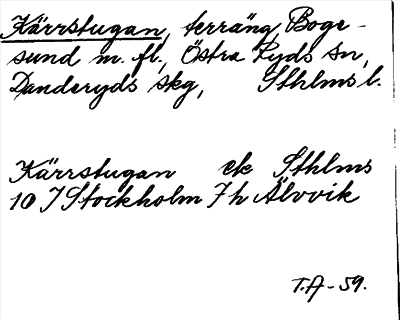 Kärrstugan, terräng, Boge-
sund m. fl., Östra Ryds sn,
Danderyds skg, Sthlms l.
Kärrstugan ek Sthlms
10 I Stockholm 7 h Älvvik
T.A-59.